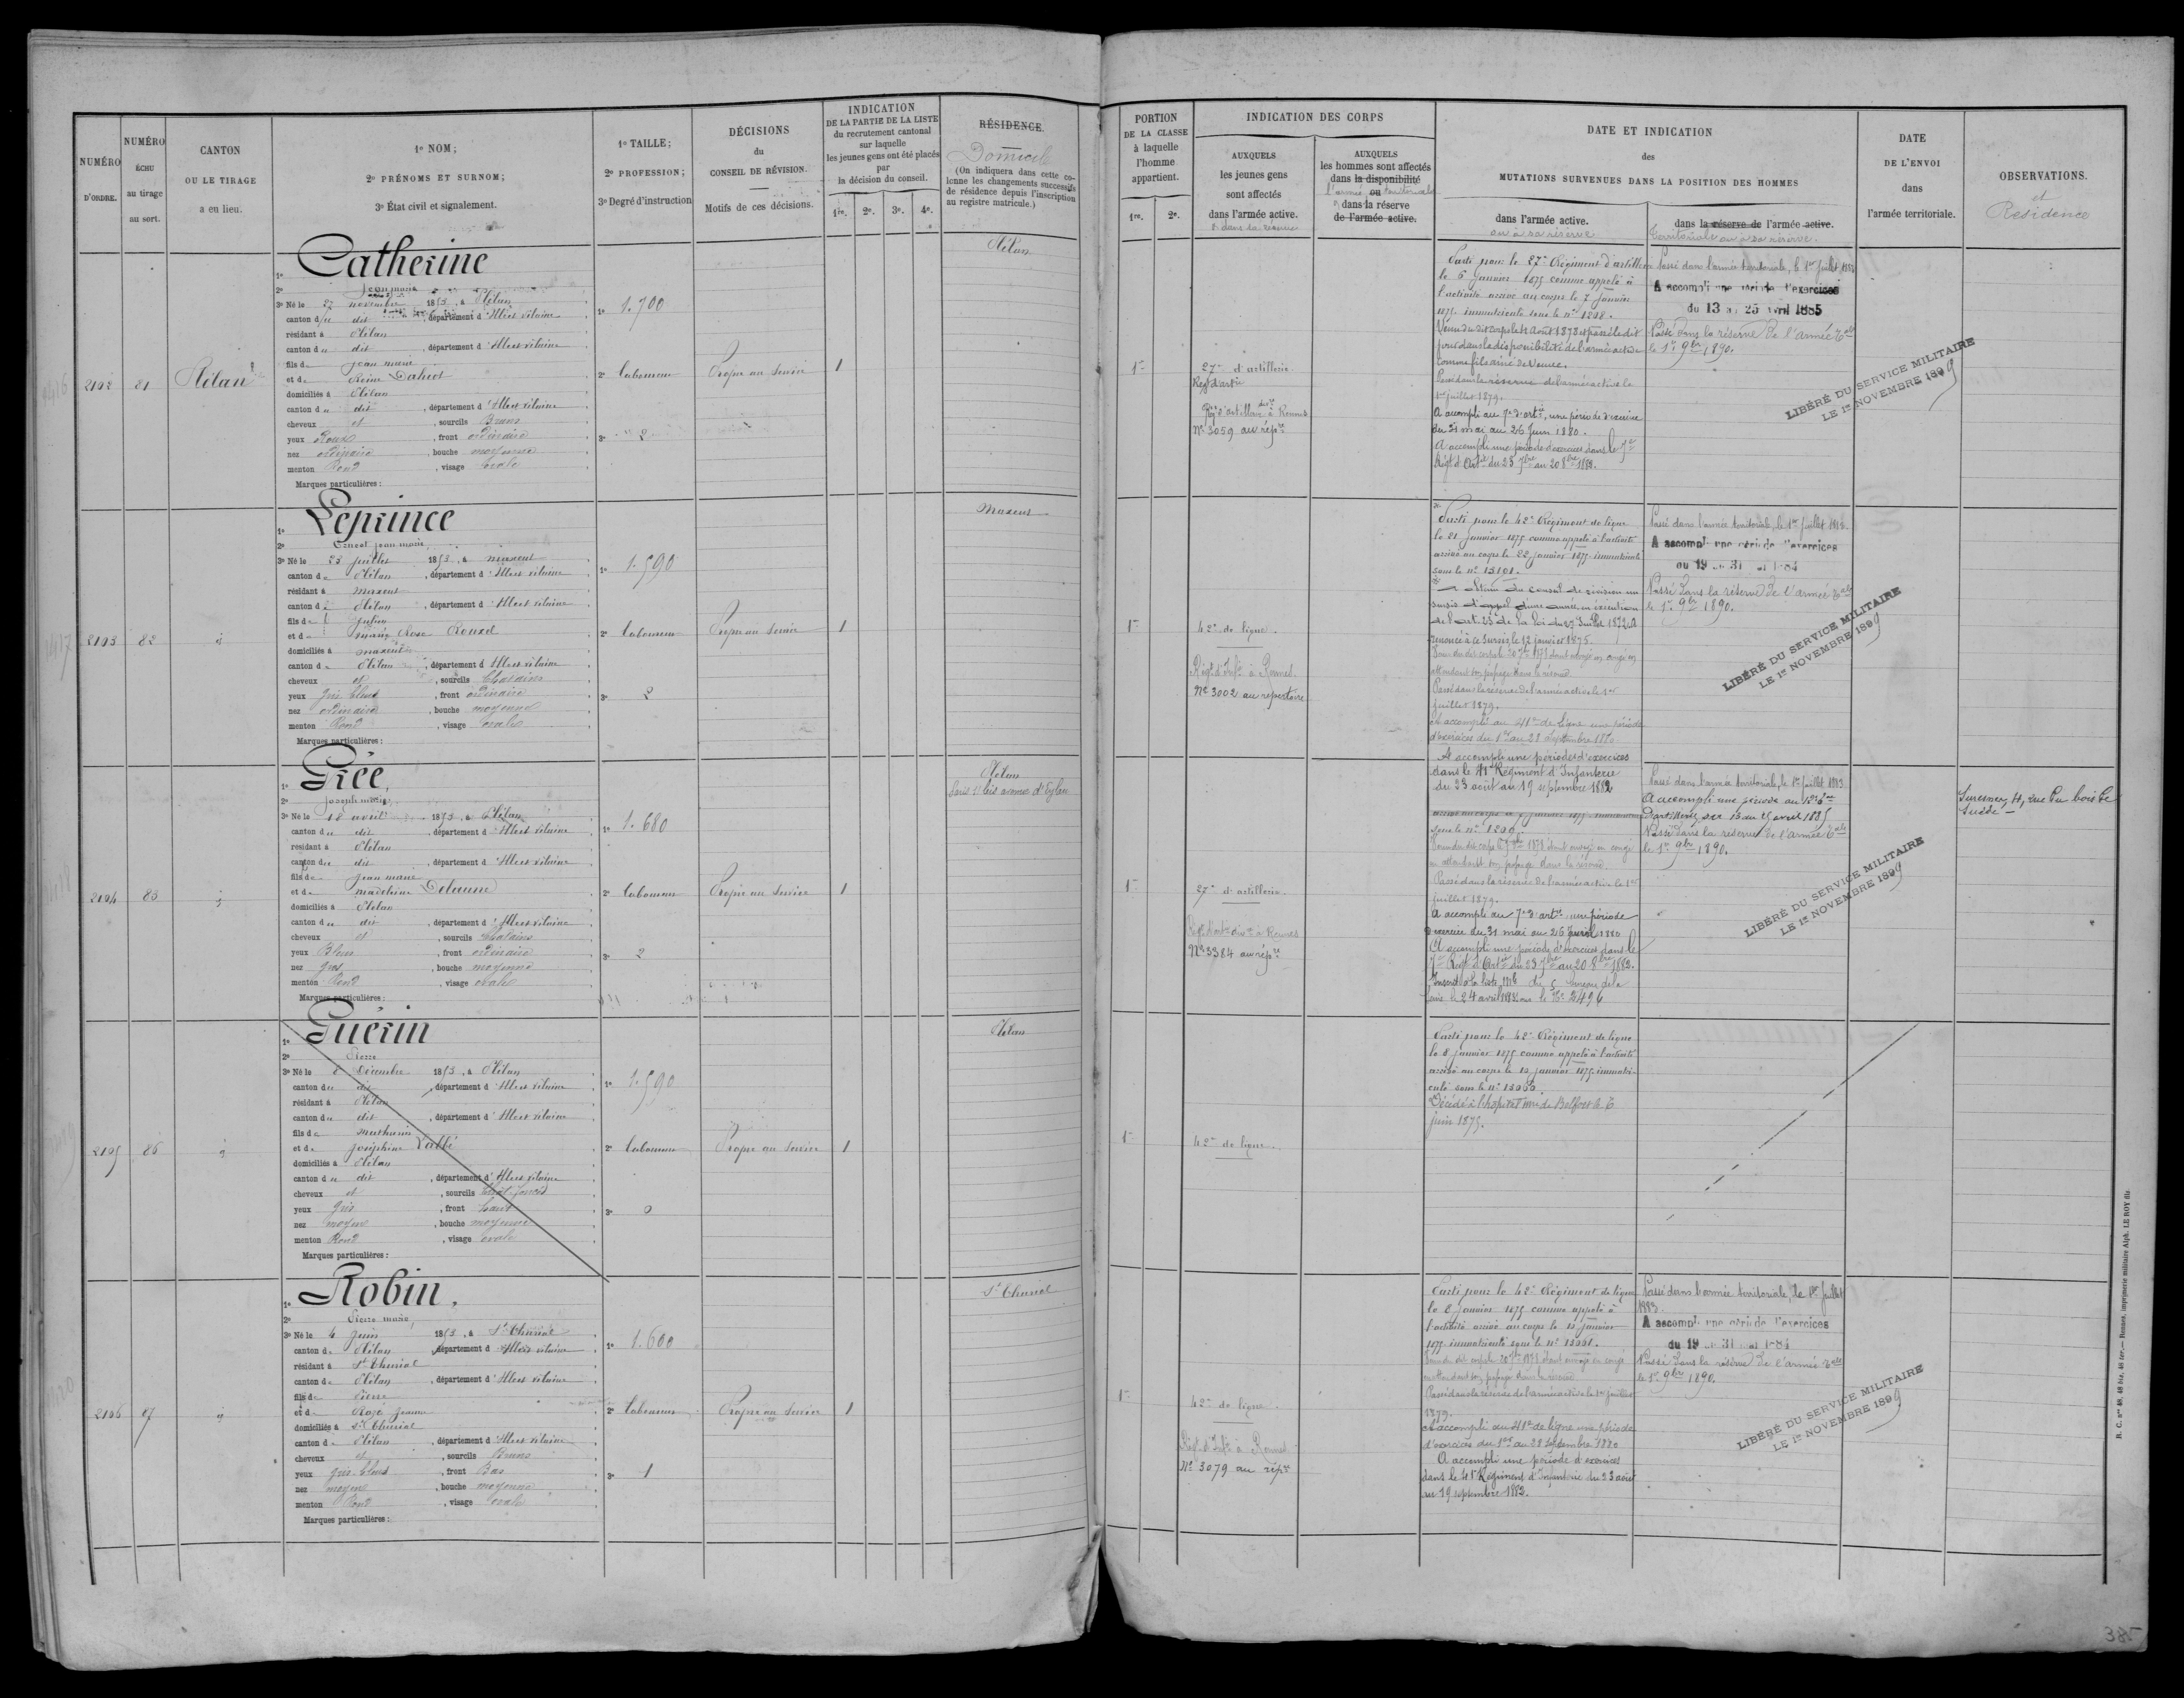 NUMÉRO D'ORDRE.
NUMÉRO ÉCHU au tirage au sort.
CANTON OU LE TIRAGE a eu lieu.
1º NOM;
2º PRÉNOMS ET SURNOM;
3º État civil et signalement.
1º TAILLE;
2º PROFESSION;
3º Degré d'instruction
DÉCISIONS du CONSEIL DE RÉVISION.
Motifs de ces décisions.
INDICATION
DE LA PARTIE DE LA LISTE
du recrutement cantonal
sur laquelle
les jeunes gens ont été placés
par
la décision du conseil.
1re. 2e. 3e. 4e.
RÉSIDENCE.
Domicile
(On indiquera dans cette co-
lonne les changements successifs
de résidence depuis l'inscription
au registre matricule.)
PORTION
DE LA CLASSE
à laquelle
l'homme
appartient.
1re. 2e.
INDICATION DES CORPS
AUXQUELS
les jeunes gens
sont affectés
dans l'armée active.
& dans sa réserve
AUXQUELS
les hommes sont affectés
dans la disponibilité
l'armée ou territoriale
& dans la réserve
de l'armée active.
DATE ET INDICATION
des
MUTATIONS SURVENUES DANS LA POSITION DES HOMMES
dans l'armée active.
ou à sa réserve
dans la réserve de l'armée active.
territoriale ou à sa réserve.
DATE
DE L'ENVOI
dans
l'armée territoriale.
OBSERVATIONS.
et
Résidence
2192 81 Plélan
Catherine
2º Jean marie
3º Né le 27 novembre 1853, à Plélan
canton du dit, département d'Ille et vilaine
résidant à Plélan
canton du dit, département d'Ille et vilaine
fils de Jean marie
et de Reine
domiciliés à Plélan
canton du dit, département d'Ille et vilaine
cheveux et, sourcils Bruns
yeux Roux, front ordinaire
nez ordinaire, bouche moyenne
menton Rond, visage ovale
Marques particulières :
1º 1.700
2º laboureur
3º 2
Propre au service
1
Plélan
1re
27e d'artillerie
Régt d'artie
Nº 3059 au répre
Parti pour le 27e Régiment d'artillerie
le 6 janvier 1875 comme appelé à
l'activité arrivé au corps le 7 janvier
1875 immatriculé sous le nº 1208.
jour dans la disponibilité de l'armée active
comme fils aîné de veuve.
Passé dans la réserve de l'armée active le
1er juillet 1879.
A accompli au 7e d'artie, une période d'exercice
du 31 mai au 26 Juin 1880.
A accompli une période d'exercices dans le 7e
Régt d'Artie du 23 7bre au 20 8bre 1882.
Passé dans l'armée territoriale, le 1er juillet 1883
A accompli une période d'exercices
du 13 au 25 avril 1885
Passé dans la réserve de l'armée Tale
le 1er 9bre 1890.
LIBÉRÉ DU SERVICE MILITAIRE
LE 1er NOVEMBRE 1899
2193 82 id
Leprince
2º Ernest Jean marie
3º Né le 23 juillet 1853, à maxent
canton de Plélan, département d'Ille et vilaine
résidant à maxent
canton de Plélan, département d'Ille et vilaine
fils de Julien
et de marie Rose Rouxel
domiciliés à maxent
canton de Plélan, département d'Ille et vilaine
cheveux et, sourcils Chatains
yeux gris bleus, front ordinaire
nez ordinaire, bouche moyenne
menton Rond, visage ovale
Marques particulières :
1º 1.590
2º laboureur
3º 2
Propre au service
1
Maxent
1re
42e de ligne.
Régt d'Infie à Rennes.
Nº 3002 au répertoire
Parti pour le 42e Régiment de ligne
le 21 janvier 1875 comme appelé à l'activité
arrivé au corps le 22 janvier 1875 immatriculé
sous le nº 13191.
obtenu du conseil de révision un
sursis d'appel d'une année, en exécution
de l'art. 23 de la loi du 27 Juillet 1872. A
renoncé à ce sursis le 12 janvier 1875.
attendant son passage dans la réserve
Passé dans la réserve de l'armée active le 1er
juillet 1879.
A accompli au 41e de ligne une période
d'exercices du 1er au 28 Septembre 1880
A accompli une période d'exercices
dans le 41e Régiment d'Infanterie
du 23 août au 19 septembre 1882
Passé dans l'armée territoriale, le 1er juillet 1883.
A accompli une période d'exercices
du 19 au 31 mai 1884
Passé dans la réserve de l'armée Tale
le 1er 9bre 1890.
LIBÉRÉ DU SERVICE MILITAIRE
LE 1er NOVEMBRE 1899
2194 83 id
Gicé,
2º Joseph marie
3º Né le 18 avril 1853, à Plélan
canton du dit, département d'Ille et vilaine
résidant à Plélan
canton du dit, département d'Ille et vilaine
fils de Jean marie
et de madeleine
domiciliés à Plélan
canton du dit, département d'Ille et vilaine
cheveux et, sourcils Chatains
yeux Bleus, front ordinaire
nez gros, bouche moyenne
menton Rond, visage ovale
Marques particulières :
1º 1.680
2º laboureur
3º 2
Propre au service
1
Plélan
1re
27e d'artillerie.
Régt d'artie à Rennes
Nº 3384 au répre
sous le nº 1200.
en attendant son passage dans la réserve.
Passé dans la réserve de l'armée active le 1er
juillet 1879.
A accompli au 7e d'artie une période
d'exercice du 31 mai au 26 juin 1880
A accompli une période d'exercices dans le
7e Régt d'Artie du 23 7bre au 20 8bre 1882.
Passé dans l'armée territoriale, le 1er juillet 1883
Passé dans la réserve de l'armée Tale
le 1er 9bre 1890.
Suresnes, 4, rue du bois de
LIBÉRÉ DU SERVICE MILITAIRE
LE 1er NOVEMBRE 1899
2195 86 id
Guérin
2º Pierre
3º Né le 8 Décembre 1853, à Plélan
canton du dit, département d'Ille et vilaine
résidant à Plélan
canton du dit, département d'Ille et vilaine
fils de mathurin
et de Joséphine Labbé
domiciliés à Plélan
canton du dit, département d'Ille et vilaine
cheveux et, sourcils
yeux gris, front haut
nez moyen, bouche moyenne
menton Rond, visage ovale
Marques particulières :
1º 1.590
2º laboureur
3º 0
Propre au service
1
Plélan
1re
42e de ligne.
Parti pour le 42e Régiment de ligne
le 8 janvier 1875 comme appelé à l'activité
arrivé au corps le 10 janvier 1875 immatri-
culé sous le nº
Décédé à l'hôpital de Belfort le 6
juin 1875.
2196 97 id
Robin,
2º Pierre marie,
3º Né le 4 Juin 1853, à St Thurial
canton de Plélan, département d'Ille et vilaine
résidant à St Thurial
canton de Plélan, département d'Ille et vilaine
fils de Pierre
et de Rozé Jeanne
domiciliés à St Thurial
canton de Plélan, département d'Ille et vilaine
cheveux et, sourcils Bruns
yeux gris-bleus, front Bas
nez moyen, bouche moyenne
menton Rond, visage ovale
Marques particulières :
1º 1.600
2º laboureur
3º 1
Propre au service
1
St Thurial
1re
42e de ligne.
Régt d'Infie à Rennes
Nº 3079 au répre
Parti pour le 42e Régiment de ligne
le 8 janvier 1875 comme appelé à
l'activité arrivé au corps le 10 janvier
1875 immatriculé sous le nº
Passé dans la réserve de l'armée active le 1er juillet
1879.
A accompli au 41e de ligne une période
d'exercices du 1er au 28 septembre 1880
A accompli une période d'exercices
dans le 41e Régiment d'Infanterie du 23 août
au 19 septembre 1882.
Passé dans l'armée territoriale, le 1er juillet
1883.
A accompli une période d'exercices
du 19 au 31 mai 1884
Passé dans la réserve de l'armée Tale
le 1er 9bre 1890.
LIBÉRÉ DU SERVICE MILITAIRE
LE 1er NOVEMBRE 1899
Rennes, imprimerie militaire Alph. LE ROY fils
385